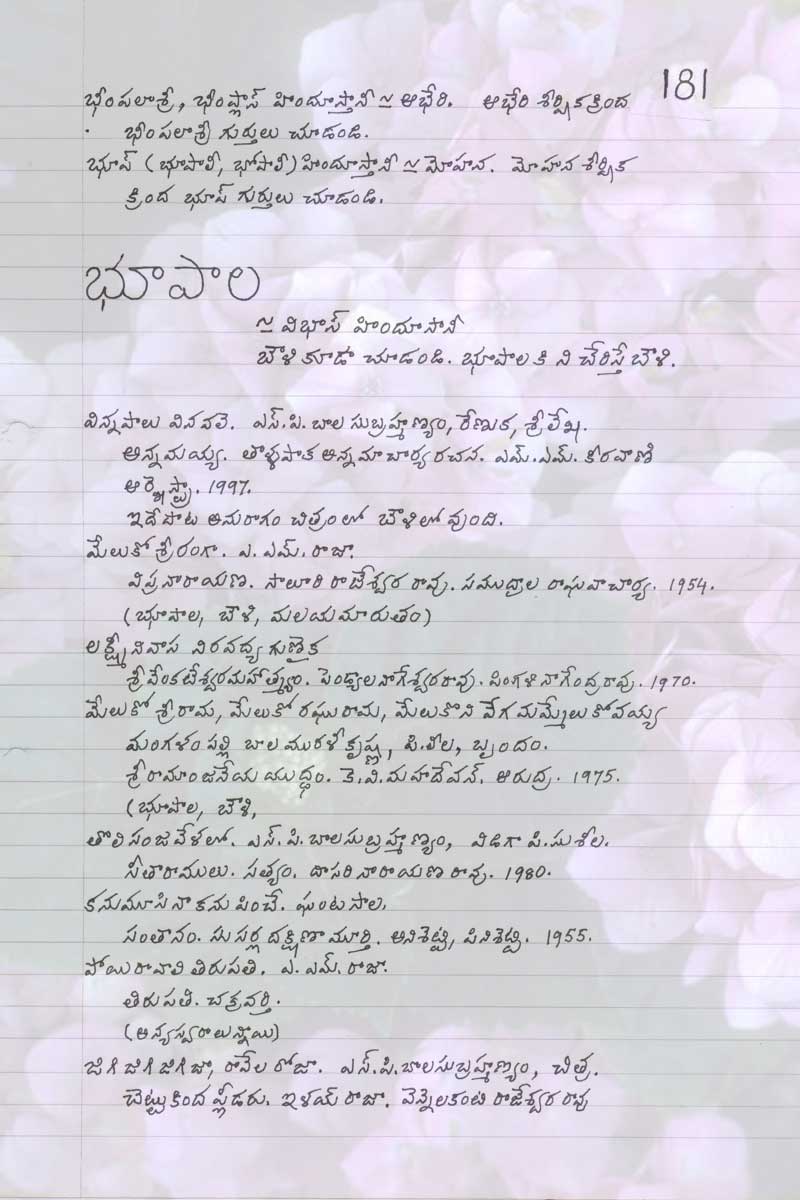 181
భీంపలాశ్రీ, భీంప్లాస్ హిందూస్తానీ ≃ ఆభేరి. ఆభేరి శీర్షికక్రింద
భీంపలాశ్రీ గుర్తులు చూడండి.
భూప్ (భూపాలీ, భోపాలీ) హిందూస్తానీ ≃ మోహన. మోహన శీర్షిక
క్రింద భూప్ గుర్తులు చూడండి.
భూపాల
≃ విభాస్ హిందూసానీ
బౌళి కూడా చూడండి. భూపాలకి ని చేరిస్తే బౌళి.
విన్నపాలు వినవలె. ఎస్.పి.బాలసుబ్రహ్మణ్యం, రేణుక, శ్రీలేఖ.
అన్నమయ్య. తాళ్ళపాక అన్నమాచార్య రచన. ఎమ్.ఎమ్. కీరవాణి
ఆర్కెస్ట్రా. 1997.
ఇదేపాట అనురాగం చిత్రంలో బౌళిలో వుంది.
మేలుకో శ్రీరంగా. ఎ. ఎమ్. రాజా.
విప్రనారాయణ. సాలూరి రాజేశ్వర రావు. సముద్రాల రాఘవాచార్య. 1954.
(భూపాల, బౌళి, మలయమారుతం)
లక్ష్మీనివాస నిరవద్య గుణైక
శ్రీవేంకటేశ్వరమహాత్మ్యం. పెండ్యాలనాగేశ్వరరావు. పింగళి నాగేంద్రరావు. 1970.
మేలుకో శ్రీరామ, మేలుకో రఘురామ, మేలుకొని వేగ మమ్మేలుకోవయ్య
మంగళంపల్లి బాలమురళీకృష్ణ, పి.లీల, బృందం.
శ్రీరామాంజనేయ యుద్ధం. కె.వి.మహాదేవన్. ఆరుద్ర. 1975.
(భూపాల, బౌళి,
తొలిసంజవేళలో. ఎస్.పి.బాలసుబ్రహ్మణ్యం, విడిగా పి.సుశీల.
సీతారాములు. సత్యం. దాసరినారాయణ రావు. 1980.
కనుమూసినా కనుపించే. ఘంటసాల.
సంతానం. సుసర్ల దక్షిణామూర్తి. అనిశెట్టి, పినిశెట్టి. 1955.
పోయిరావాలి తిరుపతి. ఎ. ఎమ్. రాజా.
తిరుపతి. చక్రవర్తి.
(అన్యస్వరాలున్నాయి)
జిగిజిగిజిగిజా, రావేల రోజా. ఎస్.పి.బాలసుబ్రహ్మణ్యం, చిత్ర.
చెట్టుకింద ప్లీడరు. ఇళయ్ రాజా. వెన్నెలకంటి రాజేశ్వర రావు